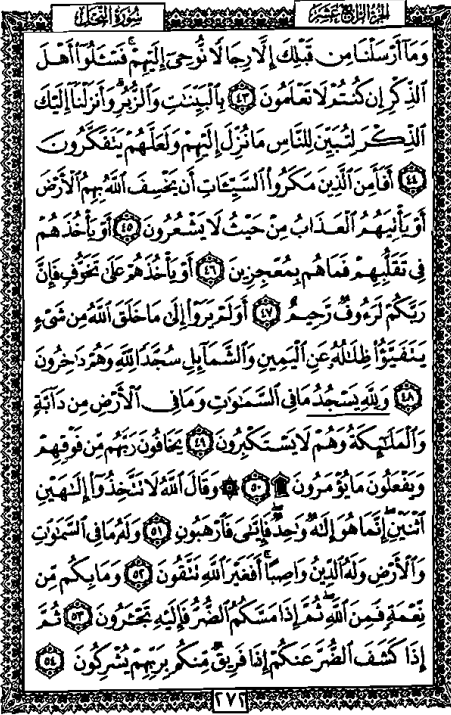 سُورَةُ النَّحْلِ الجُزْءُ الرَّابِعَ عَشَرَ
وَمَآ أَرْسَلْنَا مِن قَبْلِكَ إِلَّا رِجَالًا نُّوحِىٓ إِلَيْهِمْ ۚ فَسْـَٔلُوٓا۟ أَهْلَ
ٱلذِّكْرِ إِن كُنتُمْ لَا تَعْلَمُونَ ٤٣ بِٱلْبَيِّنَـٰتِ وَٱلزُّبُرِ ۗ وَأَنزَلْنَآ إِلَيْكَ
ٱلذِّكْرَ لِتُبَيِّنَ لِلنَّاسِ مَا نُزِّلَ إِلَيْهِمْ وَلَعَلَّهُمْ يَتَفَكَّرُونَ
٤٤ أَفَأَمِنَ ٱلَّذِينَ مَكَرُوا۟ ٱلسَّيِّـَٔاتِ أَن يَخْسِفَ ٱللَّهُ بِهِمُ ٱلْأَرْضَ
أَوْ يَأْتِيَهُمُ ٱلْعَذَابُ مِنْ حَيْثُ لَا يَشْعُرُونَ ٤٥ أَوْ يَأْخُذَهُمْ
فِى تَقَلُّبِهِمْ فَمَا هُم بِمُعْجِزِينَ ٤٦ أَوْ يَأْخُذَهُمْ عَلَىٰ تَخَوُّفٍ فَإِنَّ
رَبَّكُمْ لَرَءُوفٌ رَّحِيمٌ ٤٧ أَوَلَمْ يَرَوْا۟ إِلَىٰ مَا خَلَقَ ٱللَّهُ مِن شَىْءٍ
يَتَفَيَّؤُا۟ ظِلَـٰلُهُۥ عَنِ ٱلْيَمِينِ وَٱلشَّمَآئِلِ سُجَّدًا لِّلَّهِ وَهُمْ دَٰخِرُونَ
٤٨ وَلِلَّهِ يَسْجُدُ مَا فِى ٱلسَّمَـٰوَٰتِ وَمَا فِى ٱلْأَرْضِ مِن دَآبَّةٍ
وَٱلْمَلَـٰٓئِكَةُ وَهُمْ لَا يَسْتَكْبِرُونَ ٤٩ يَخَافُونَ رَبَّهُم مِّن فَوْقِهِمْ
وَيَفْعَلُونَ مَا يُؤْمَرُونَ ۩ ٥٠ ۞ وَقَالَ ٱللَّهُ لَا تَتَّخِذُوٓا۟ إِلَـٰهَيْنِ
ٱثْنَيْنِ ۖ إِنَّمَا هُوَ إِلَـٰهٌ وَٰحِدٌ ۖ فَإِيَّـٰىَ فَٱرْهَبُونِ ٥١ وَلَهُۥ مَا فِى ٱلسَّمَـٰوَٰتِ
وَٱلْأَرْضِ وَلَهُ ٱلدِّينُ وَاصِبًا ۚ أَفَغَيْرَ ٱللَّهِ تَتَّقُونَ ٥٢ وَمَا بِكُم مِّن
نِّعْمَةٍ فَمِنَ ٱللَّهِ ۖ ثُمَّ إِذَا مَسَّكُمُ ٱلضُّرُّ فَإِلَيْهِ تَجْـَٔرُونَ ٥٣ ثُمَّ
إِذَا كَشَفَ ٱلضُّرَّ عَنكُمْ إِذَا فَرِيقٌ مِّنكُم بِرَبِّهِمْ يُشْرِكُونَ ٥٤
٢٧٢